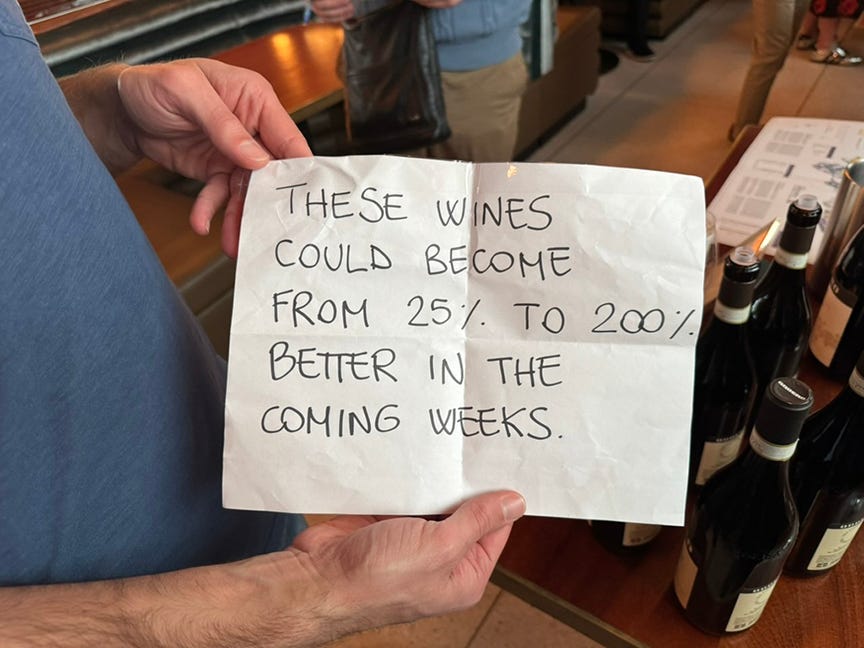 THESE WINES
COULD BECOME
FROM 25% TO 200%
BETTER IN THE
COMING WEEKS.